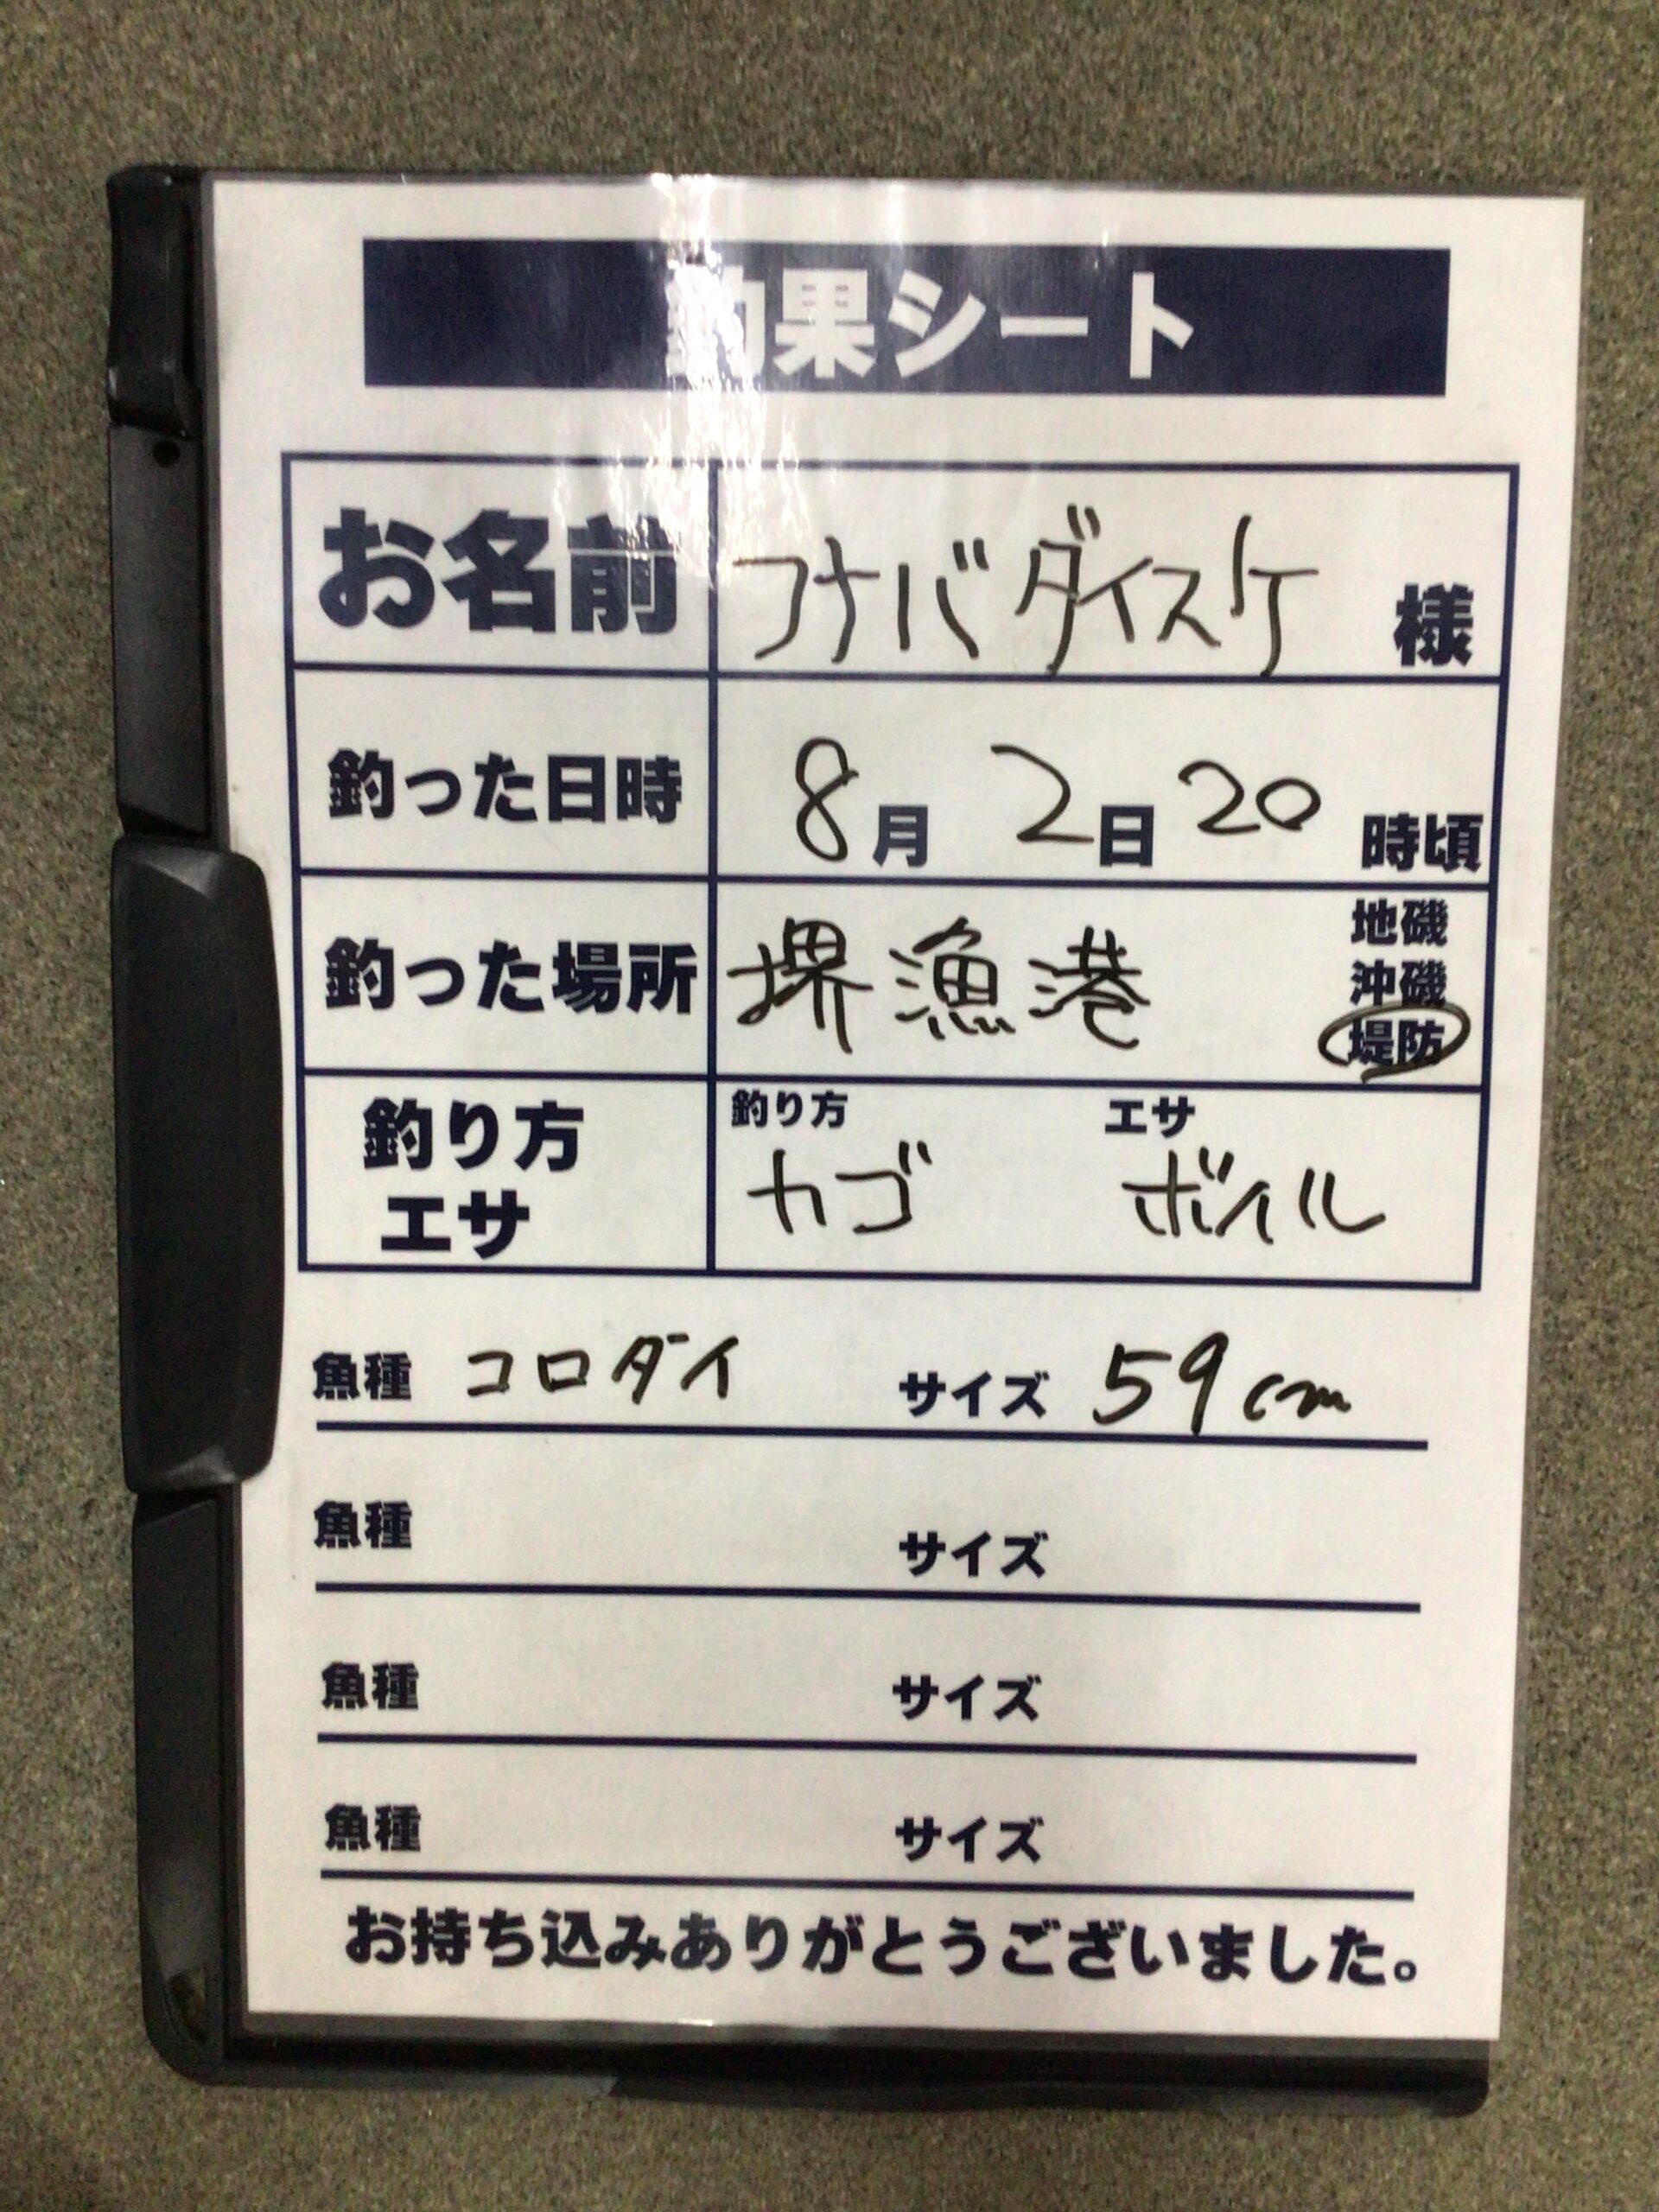 釣果シート
お名前 フナバダイスケ 様
釣った日時 8月 2日 20時頃
釣った場所 堺漁港 地磯
沖磯
堤防
釣り方 釣り方 エサ
エサ カゴ ボイル
魚種 コロダイ サイズ 59cm
魚種 サイズ
魚種 サイズ
魚種 サイズ
お持ち込みありがとうございました。